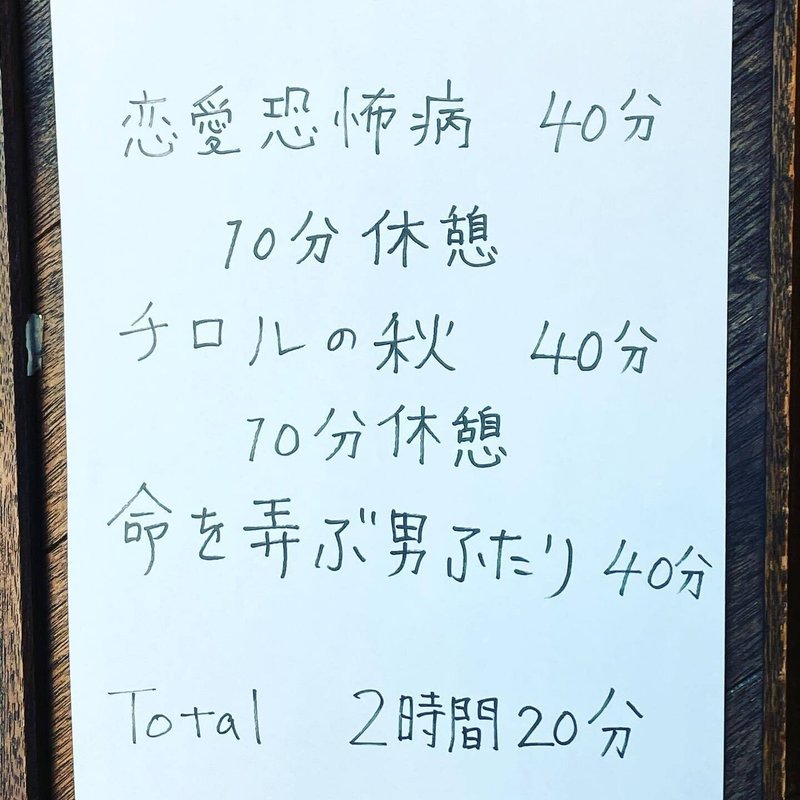 恋愛恐怖病 40分
10分休憩
チロルの秋 40分
10分休憩
命を弄ぶ男ふたり 40分
Total 2時間20分